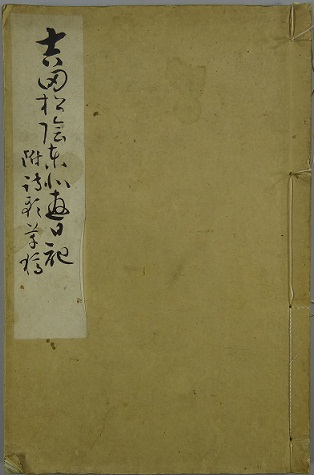 吉田松陰東北遊日記
附詩歌草稿